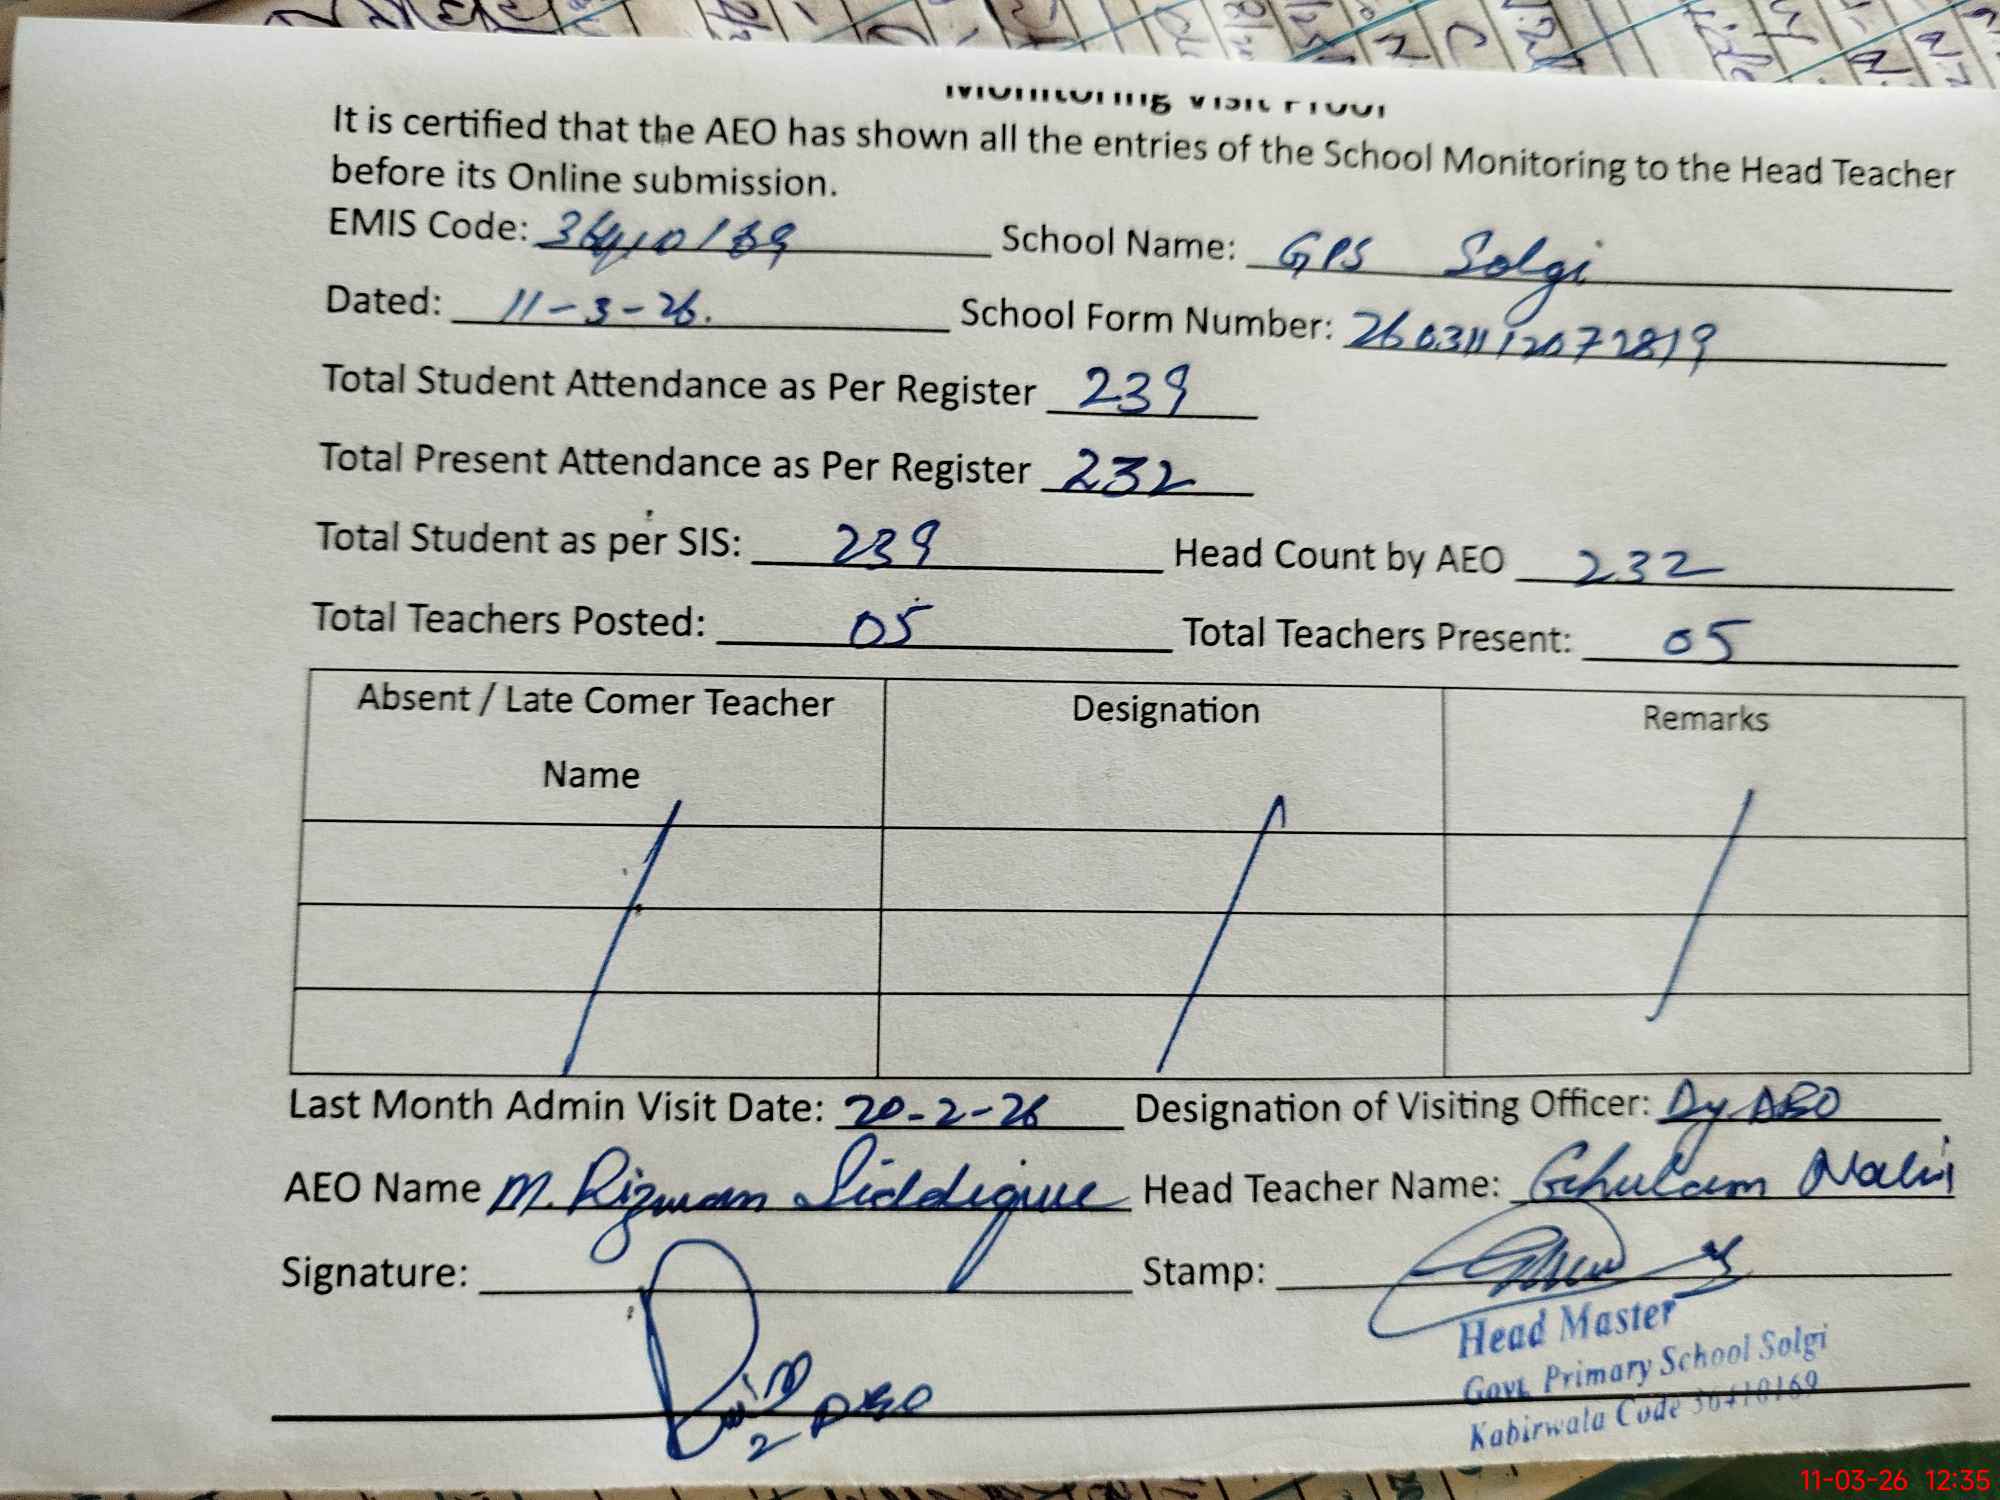 Monitoring Visit Proof
It is certified that the AEO has shown all the entries of the School Monitoring to the Head Teacher
before its Online submission.
EMIS Code: 36410169 School Name: GPS Solgi
Dated: 11-3-26. School Form Number: 26031112072819
Total Student Attendance as Per Register 239
Total Present Attendance as Per Register 232
Total Student as per SIS: 239 Head Count by AEO 232
Total Teachers Posted: 05 Total Teachers Present: 05
Absent / Late Comer Teacher Designation Remarks
Name
Last Month Admin Visit Date: 20-2-26 Designation of Visiting Officer: Dy. DEO
AEO Name M. Rizwan Siddique Head Teacher Name: Ghulam Nabi
Signature: Stamp:
Head Master
Govt. Primary School Solgi
Kabirwala Code 36410169
11-03-26 12:35